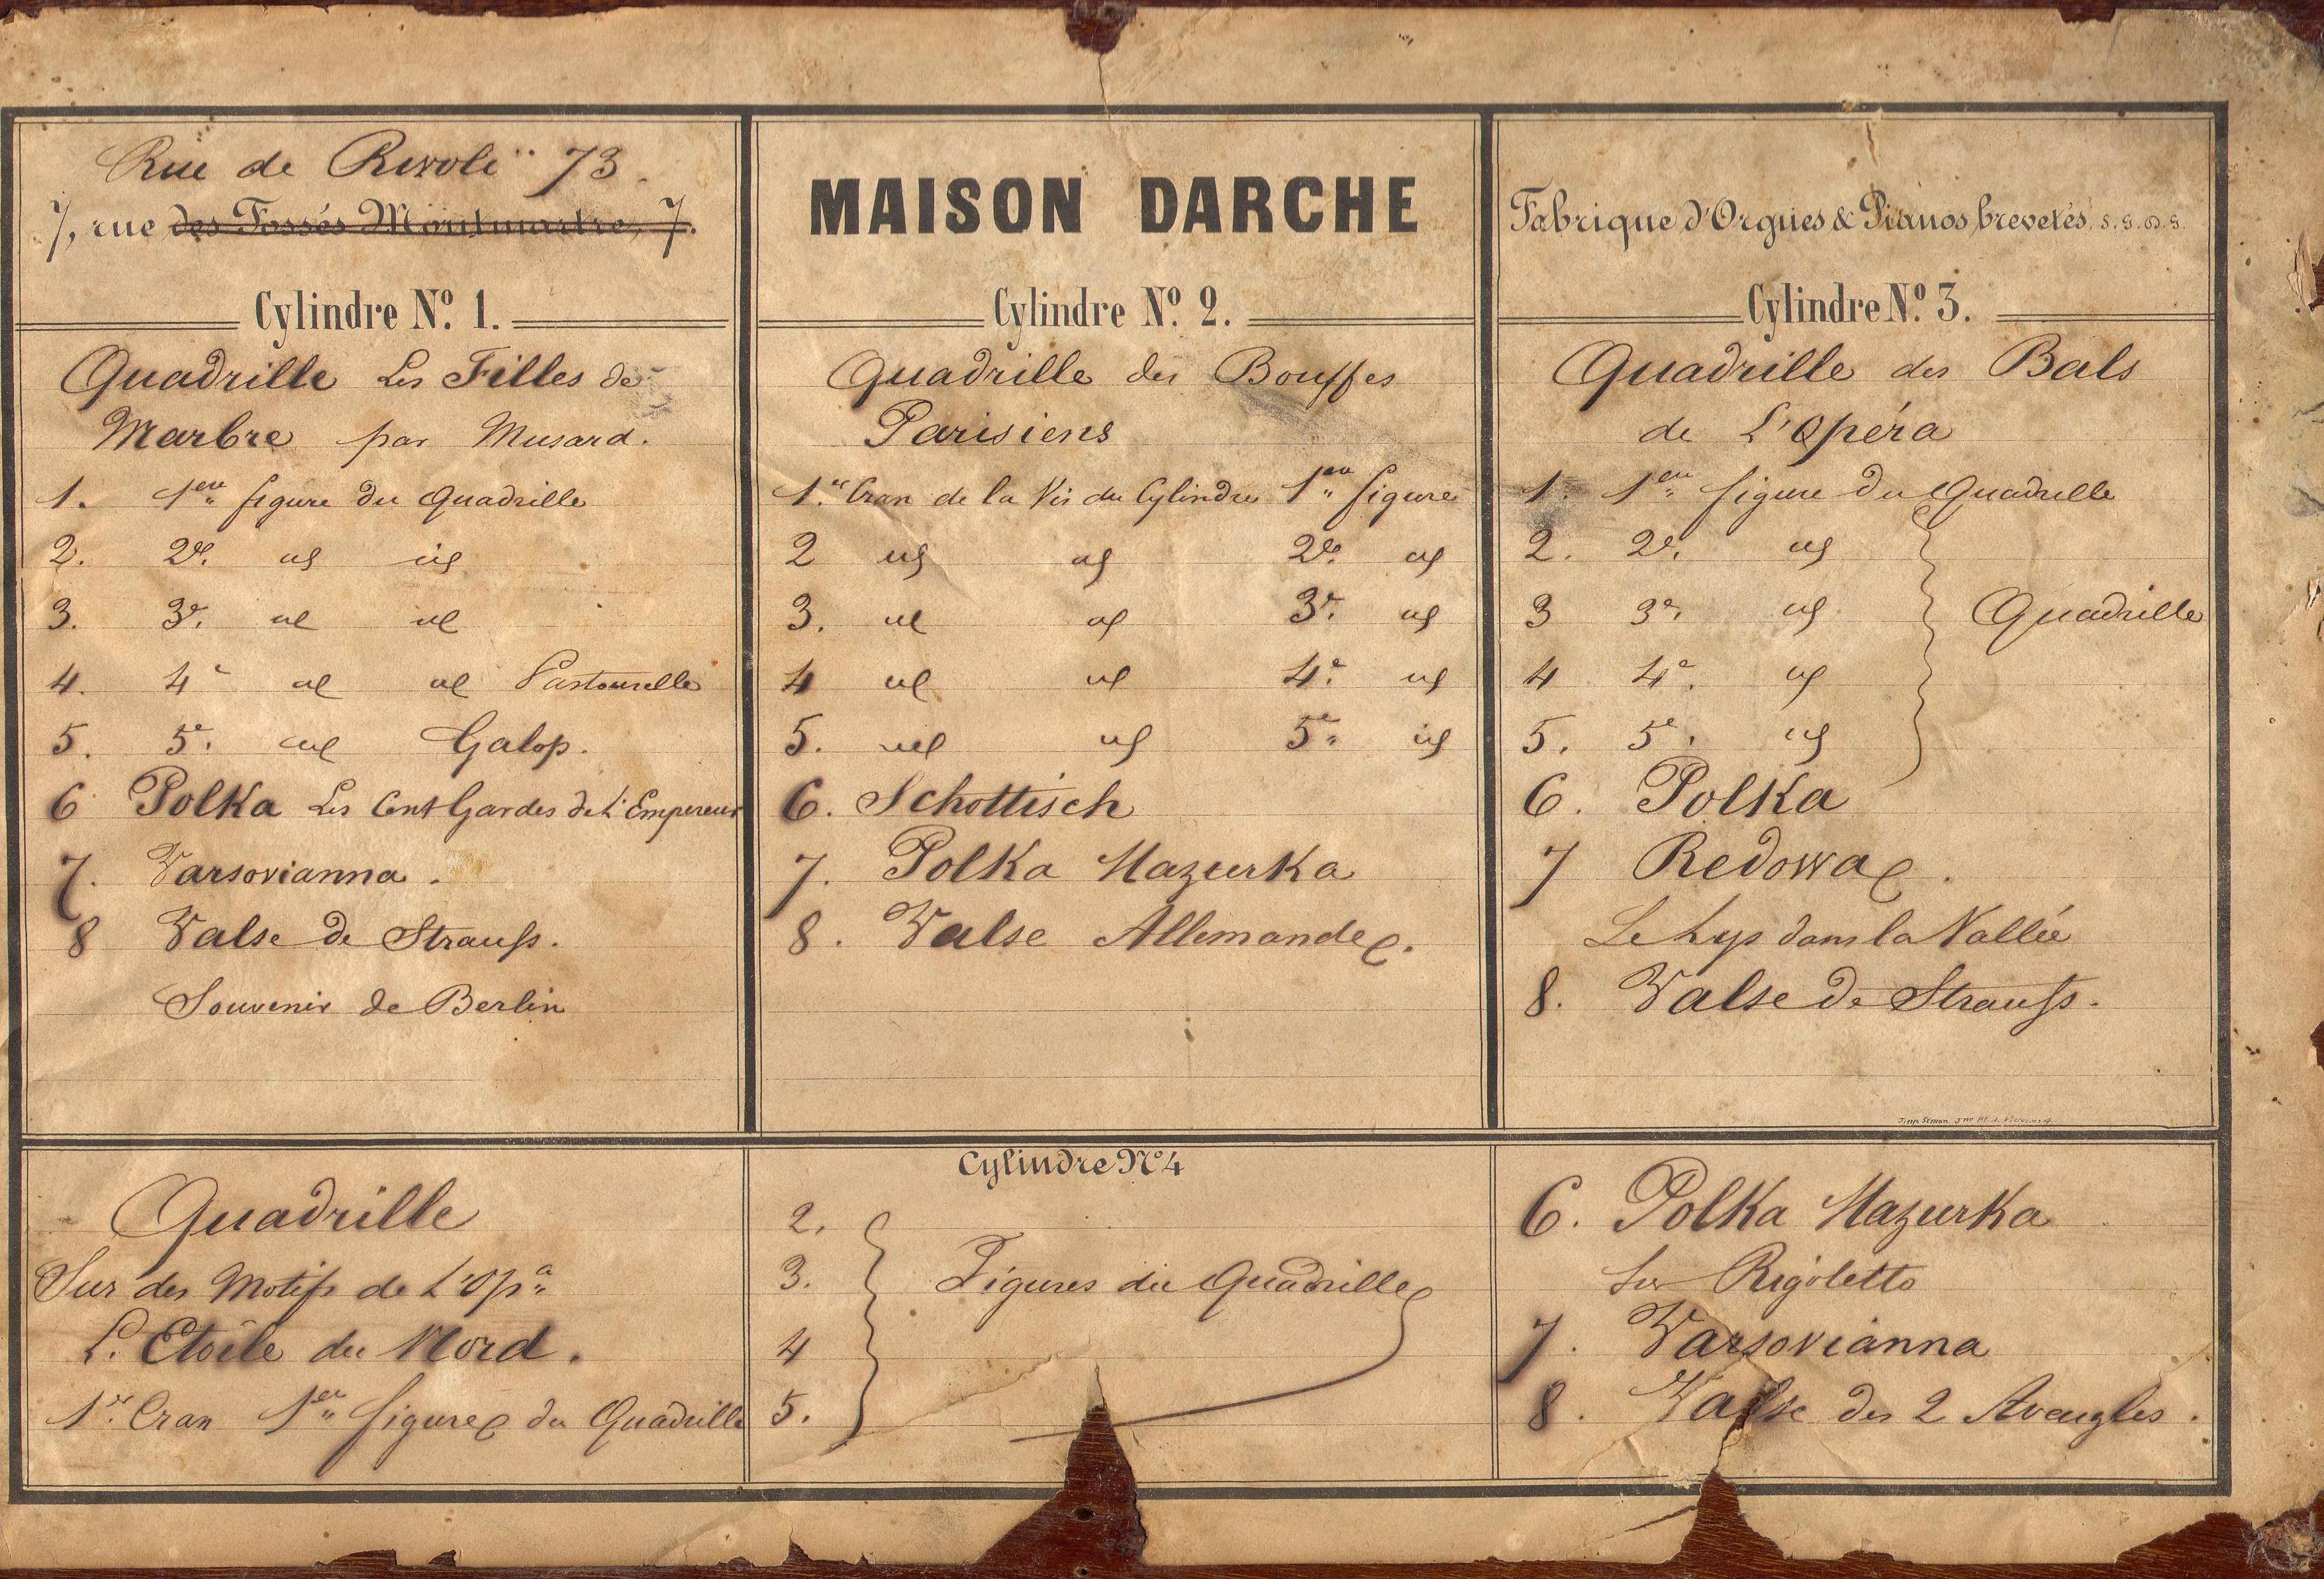 Rue de Rivoli 73.
7, rue des Fossés Montmartre, 7.
Cylindre Nº. 1.
Quadrille Les Filles de
Marbre par Musard.
1. 1ere figure du Quadrille
2. 2e. id id
3. 3e. id id
4. 4e id id Pastourelle
5. 5e. id Galop.
6 Polka Les Cent Gardes de L'Empereur
7. Varsovianna.
8 Valse de Strauss.
Souvenir de Berlin
MAISON DARCHE
Cylindre Nº. 2.
Quadrille des Bouffes
Parisiens
1er Cran de la Vis du Cylindre 1ere figure
2 id id 2e. id
3. id id 3e. id
4 id id 4e. id
5. id id 5e. id
6. Schottisch
7. Polka Mazurka
8. Valse Allemande.
Fabrique d'Orgues & Pianos brevetés, s.g.d.g.
Cylindre Nº. 3.
Quadrille des Bals
de L'Opéra
1. 1ere figure du Quadrille
2. 2e. id
3 3e. id Quadrille
4 4e. id
5. 5e. id
6. Polka
7 Redowa.
Le Lys dans la Vallée
8. Valse de Strauss.
Cylindre Nº 4
Quadrille
Sur des Motifs de L'Opa
L'Etoile du Nord.
1er Cran 1ere figure du Quadrille
2.
3. Figures du Quadrille
4
5.
6. Polka Mazurka
sur Rigoletto
7. Varsovianna
8. Valse des 2 Aveugles.